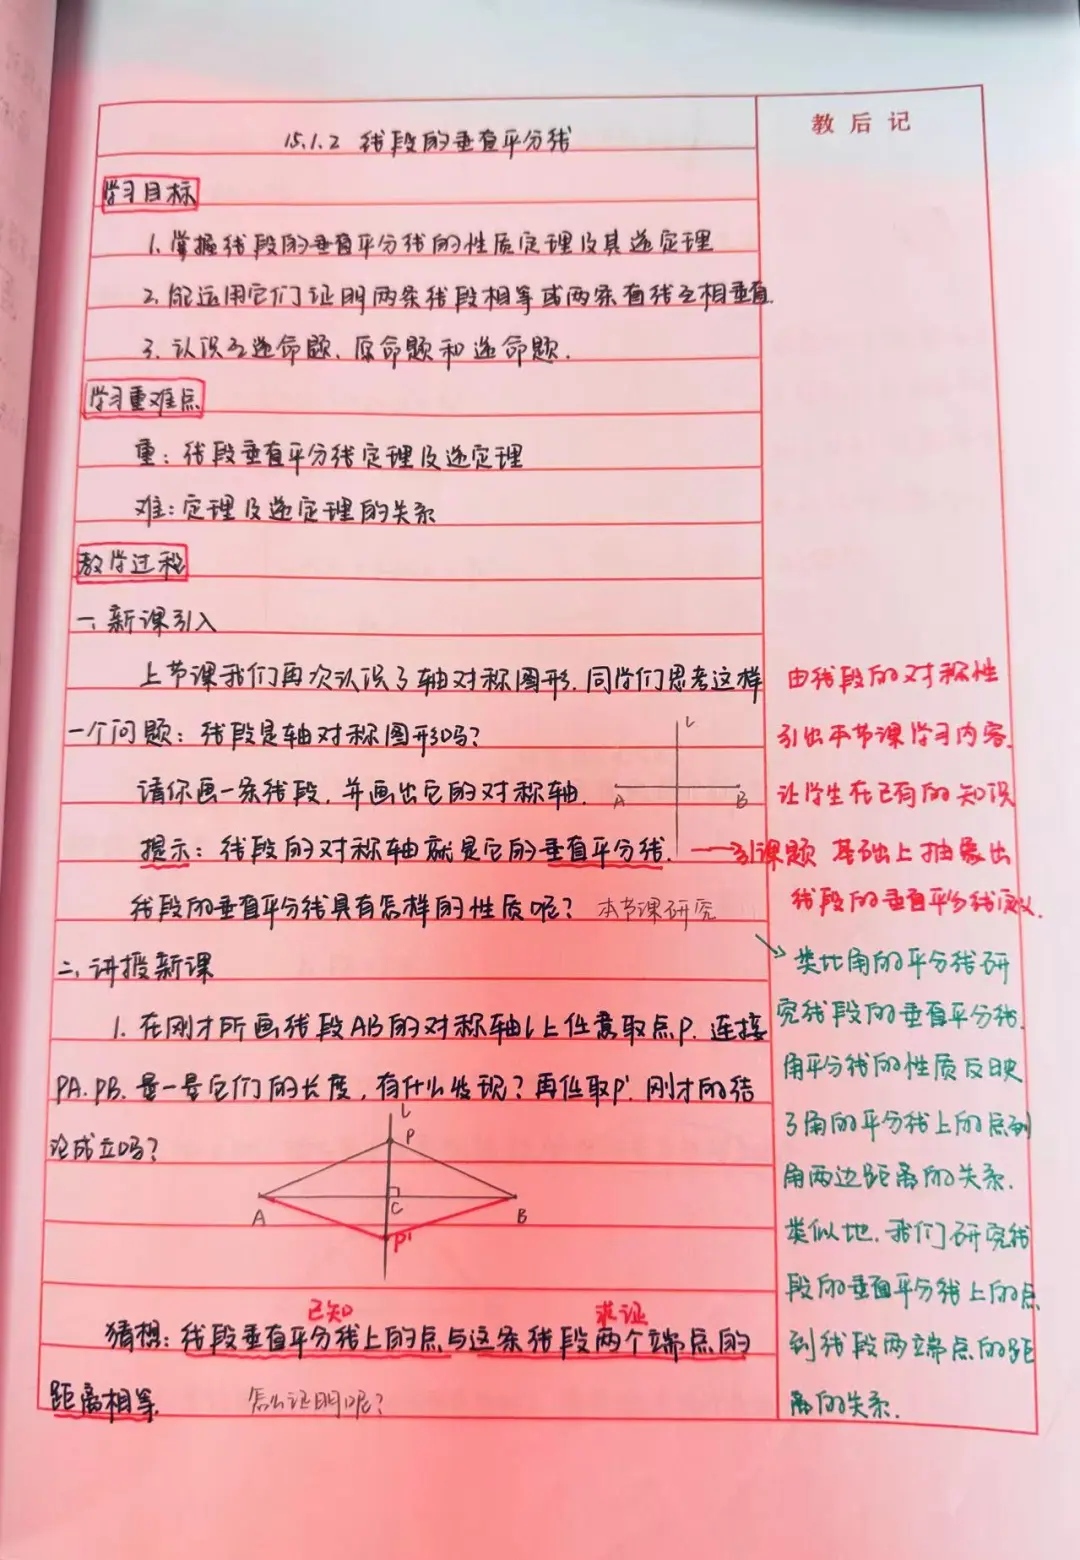 15.1.2 线段的垂直平分线
学习目标
1.掌握线段的垂直平分线的性质定理及其逆定理
2.能运用它们证明两条线段相等或两条直线互相垂直.
3.认识互逆命题、原命题和逆命题.
学习重难点
重：线段垂直平分线定理及逆定理
难：定理及逆定理的关系
教学过程
一、新课引入
上节课我们再次认识了轴对称图形.同学们思考这样
一个问题：线段是轴对称图形吗？
请你画一条线段，并画出它的对称轴.
l
A
B
提示：线段的对称轴就是它的垂直平分线. →引课题
线段的垂直平分线具有怎样的性质呢？ 本节课研究
二、讲授新课
1.在刚才所画线段AB的对称轴l上任意取点P.连接
PA.PB.量一量它们的长度，有什么发现？再任取P'.刚才的结
论成立吗？
l
P
A
C
B
P'
已知 求证
猜想：线段垂直平分线上的点与这条线段两个端点的
距离相等. 怎么证明呢？
教后记
由线段的对称性
引出本节课学习内容.
让学生在已有的知识
基础上抽象出
线段的垂直平分线定义.
类比角的平分线研
究线段的垂直平分线.
角平分线的性质反映
了角的平分线上的点到
角两边距离的关系.
类似地.我们研究线
段的垂直平分线上的点
到线段两端点的距
离的关系.